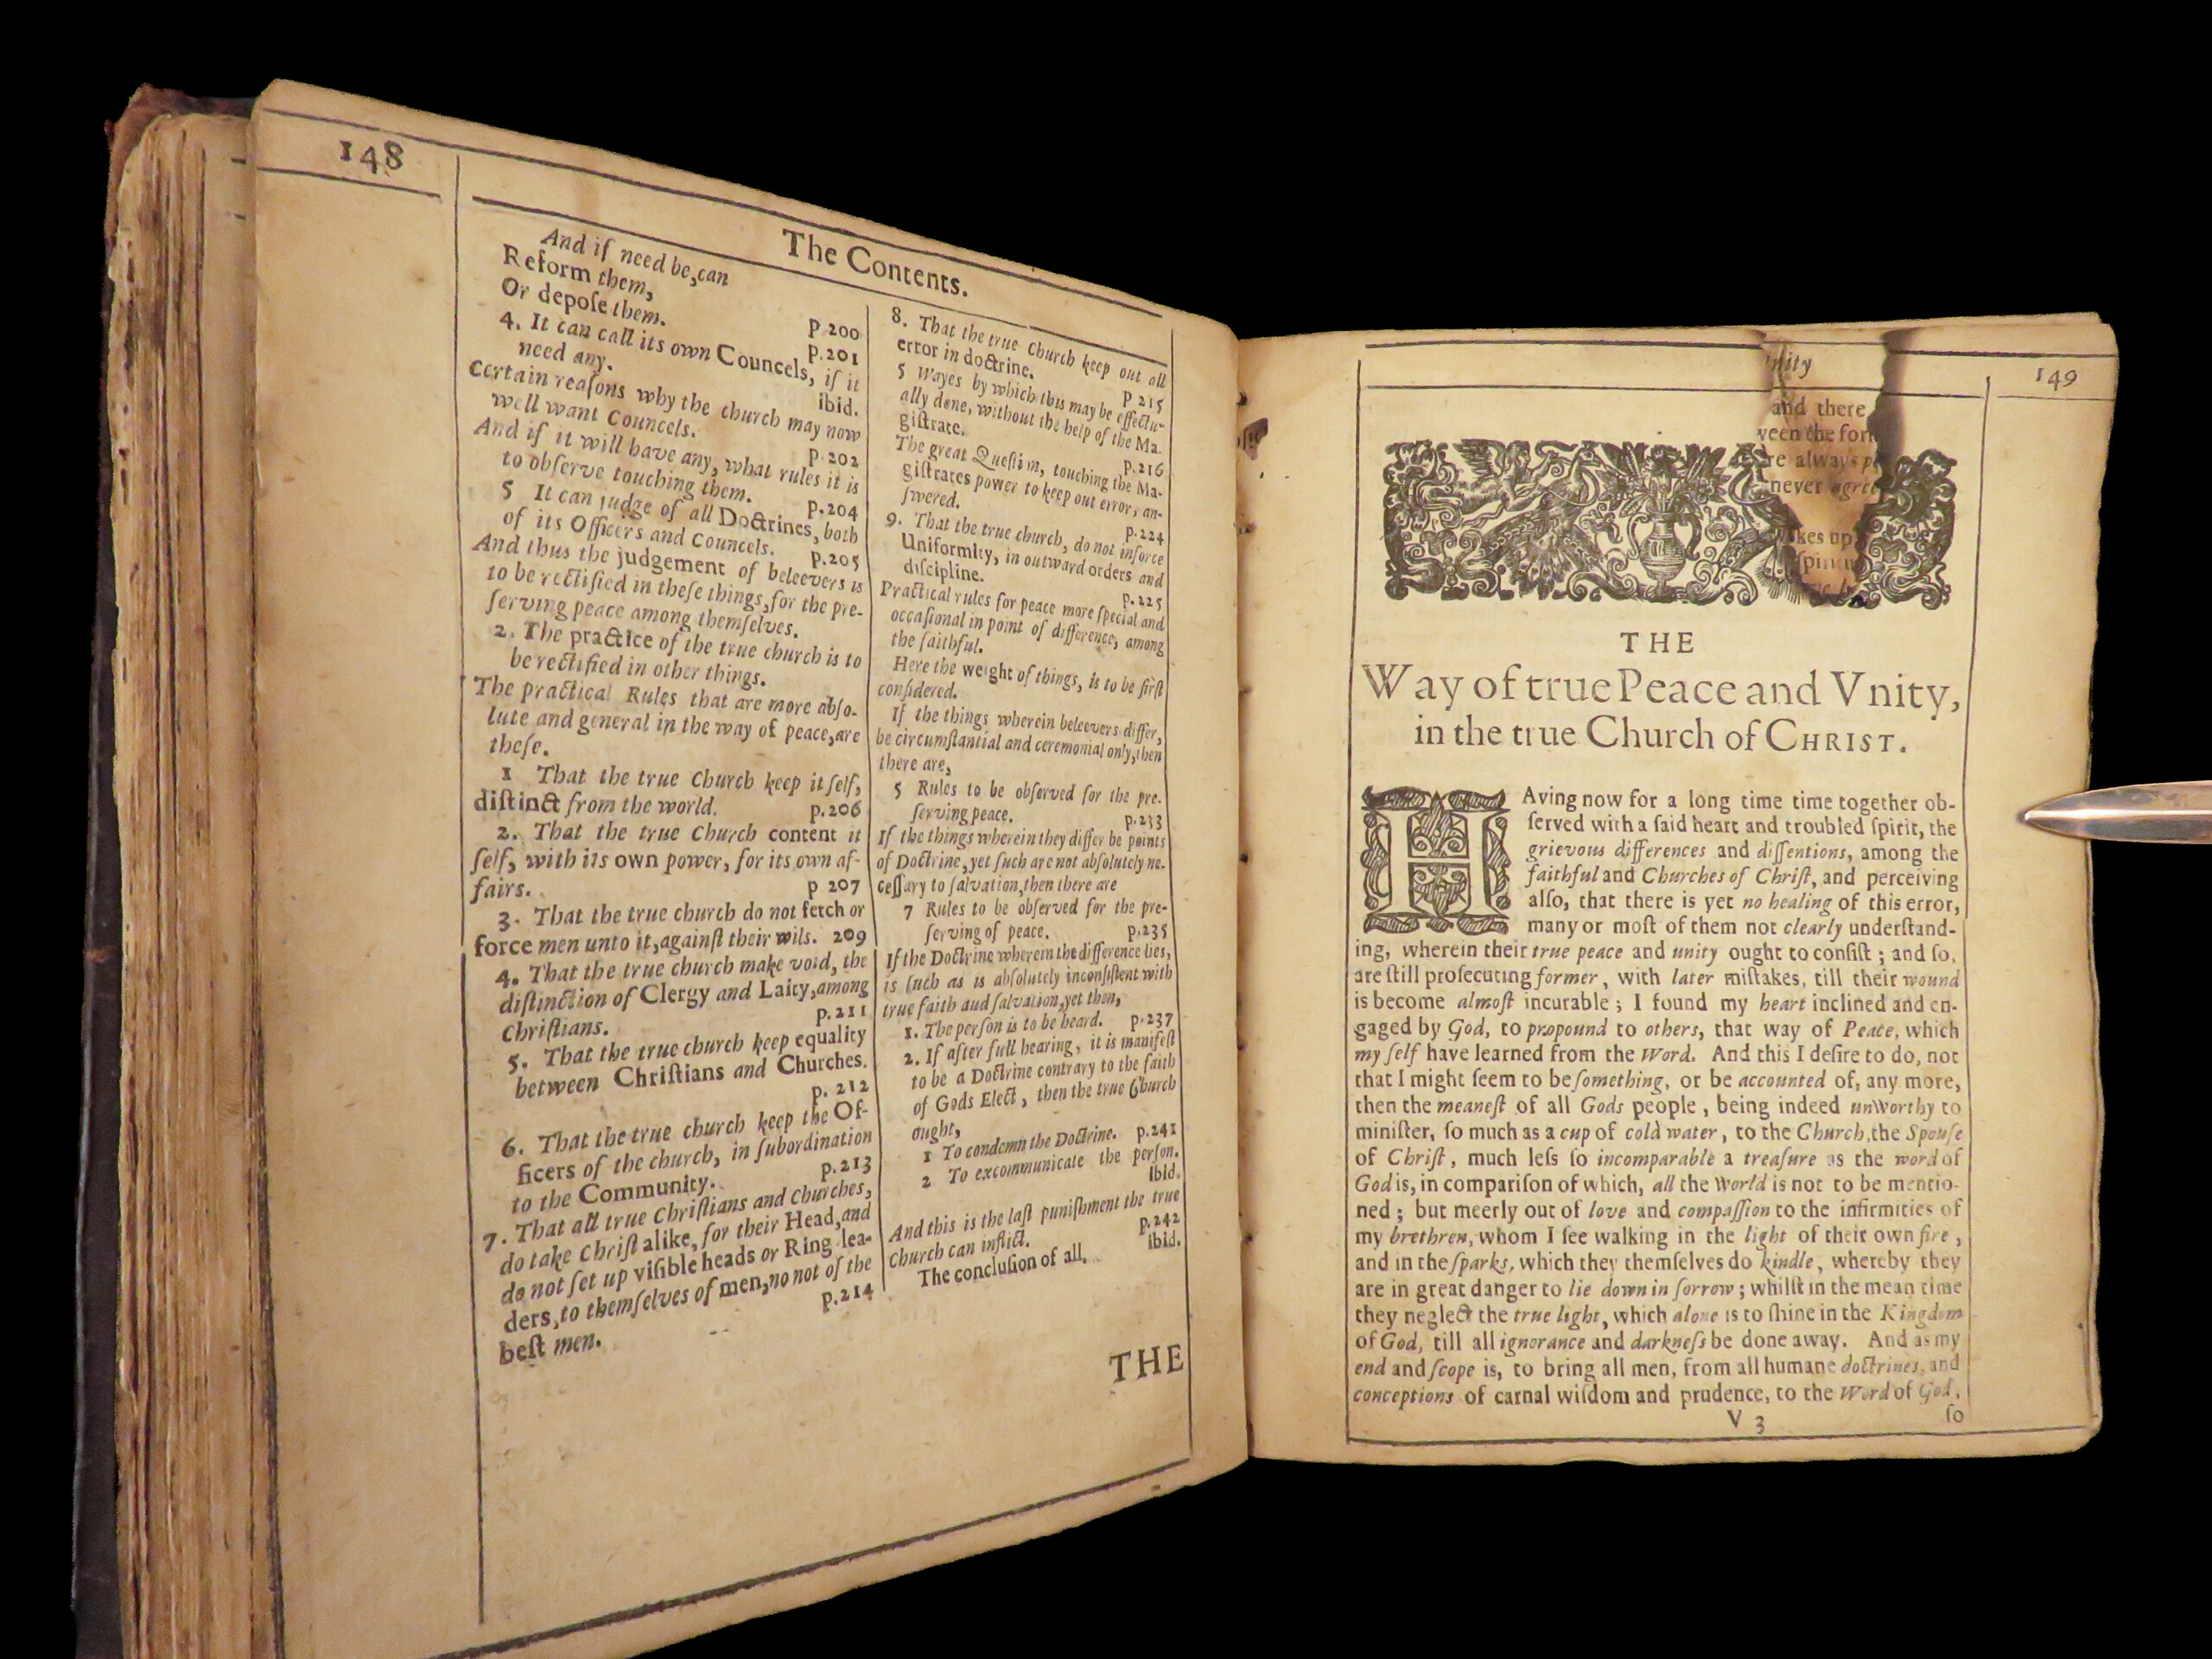 148
The Contents.
And if need be, can
Reform them,
Or depoſe them. p 200
p. 201
4. It can call its own Councels, if it
need any. ibid.
Certain reaſons why the church may now
well want Councels. p. 202
And if it will have any, what rules it is
to obſerve touching them. p. 204
5 It can judge of all Doctrines, both
of its Officers and Councels. p. 205
And thus the judgement of beleevers is
to be rectified in theſe things, for the pre-
ſerving peace among themſelves.
2. The practice of the true church is to
be rectified in other things.
The practical Rules that are more abſo-
lute and general in the way of peace, are
theſe.
1 That the true Church keep it ſelf,
diſtinct from the world. p. 206
2. That the true Church content it
ſelf, with its own power, for its own af-
fairs. p 207
3. That the true church do not fetch or
force men unto it, againſt their wils. 209
4. That the true church make void, the
diſtinction of Clergy and Laity, among
Chriſtians. p. 211
5. That the true church keep equality
between Chriſtians and Churches.
p. 212
6. That the true church keep the Of-
ficers of the church, in ſubordination
to the Community. p. 213
7. That all true Chriſtians and Churches,
do take Chriſt alike, for their Head, and
do not ſet up viſible heads or Ring lea-
ders, to themſelves of men, no not of the
beſt men. p. 214
8. That the true Church keep out all
error in doctrine. p 215
5 Wayes by which this may be effectu-
ally done, without the help of the Ma-
giſtrate. p. 216
The great Queſtion, touching the Ma-
giſtrates power to keep out error, an-
ſwered. p. 224
9. That the true church, do not inforce
Uniformity, in outward orders and
diſcipline. p. 225
Practical rules for peace more ſpecial and
occaſional in point of difference, among
the faithful.
Here the weight of things, is to be firſt
conſidered.
If the things wherein beleevers differ,
be circumſtantial and ceremonial only, then
there are,
5 Rules to be obſerved for the pre-
ſerving peace. p. 233
If the things wherein they differ be points
of Doctrine, yet ſuch are not abſolutely ne-
ceſſary to ſalvation, then there are
7 Rules to be obſerved for the pre-
ſerving of peace. p. 235
If the Doctrine wherein the difference lies,
is ſuch as is abſolutely inconſiſtent with
true faith aud ſalvation, yet then,
1. The perſon is to be heard. p. 237
2. If after full hearing, it is manifeſt
to be a Doctrine contrary to the faith
of Gods Elect, then the true Church
ought,
1 To condemn the Doctrine. p. 241
2 To excommunicate the perſon.
Ibid.
And this is the laſt puniſhment the true
Church can inflict. p. 242
The concluſion of all. ibid.
THE
nity
149
and there
ween the for
re always p
never agree
kes up
ſpiri
THE
Way of true Peace and Vnity,
in the true Church of CHRIST.
HAving now for a long time time together ob-
ſerved with a ſaid heart and troubled ſpirit, the
grievous differences and diſſentions, among the
faithful and Churches of Chriſt, and perceiving
alſo, that there is yet no healing of this error,
many or moſt of them not clearly underſtand-
ing, wherein their true peace and unity ought to conſiſt; and ſo,
are ſtill proſecuting former, with later miſtakes, till their wound
is become almoſt incurable; I found my heart inclined and en-
gaged by God, to propound to others, that way of Peace, which
my ſelf have learned from the Word. And this I deſire to do, not
that I might ſeem to be ſomething, or be accounted of, any more,
then the meaneſt of all Gods people, being indeed unworthy to
miniſter, ſo much as a cup of cold water, to the Church, the Spouſe
of Chriſt, much leſs ſo incomparable a treaſure as the word of
God is, in compariſon of which, all the World is not to be mentio-
ned; but meerly out of love and compaſſion to the infirmities of
my brethren, whom I ſee walking in the light of their own fire,
and in the ſparks, which they themſelves do kindle, whereby they
are in great danger to lie down in ſorrow; whilſt in the mean time
they neglect the true light, which alone is to ſhine in the Kingdom
of God, till all ignorance and darkneſs be done away. And as my
end and ſcope is, to bring all men, from all humane doctrines, and
conceptions of carnal wiſdom and prudence, to the Word of God,
V 3
ſo